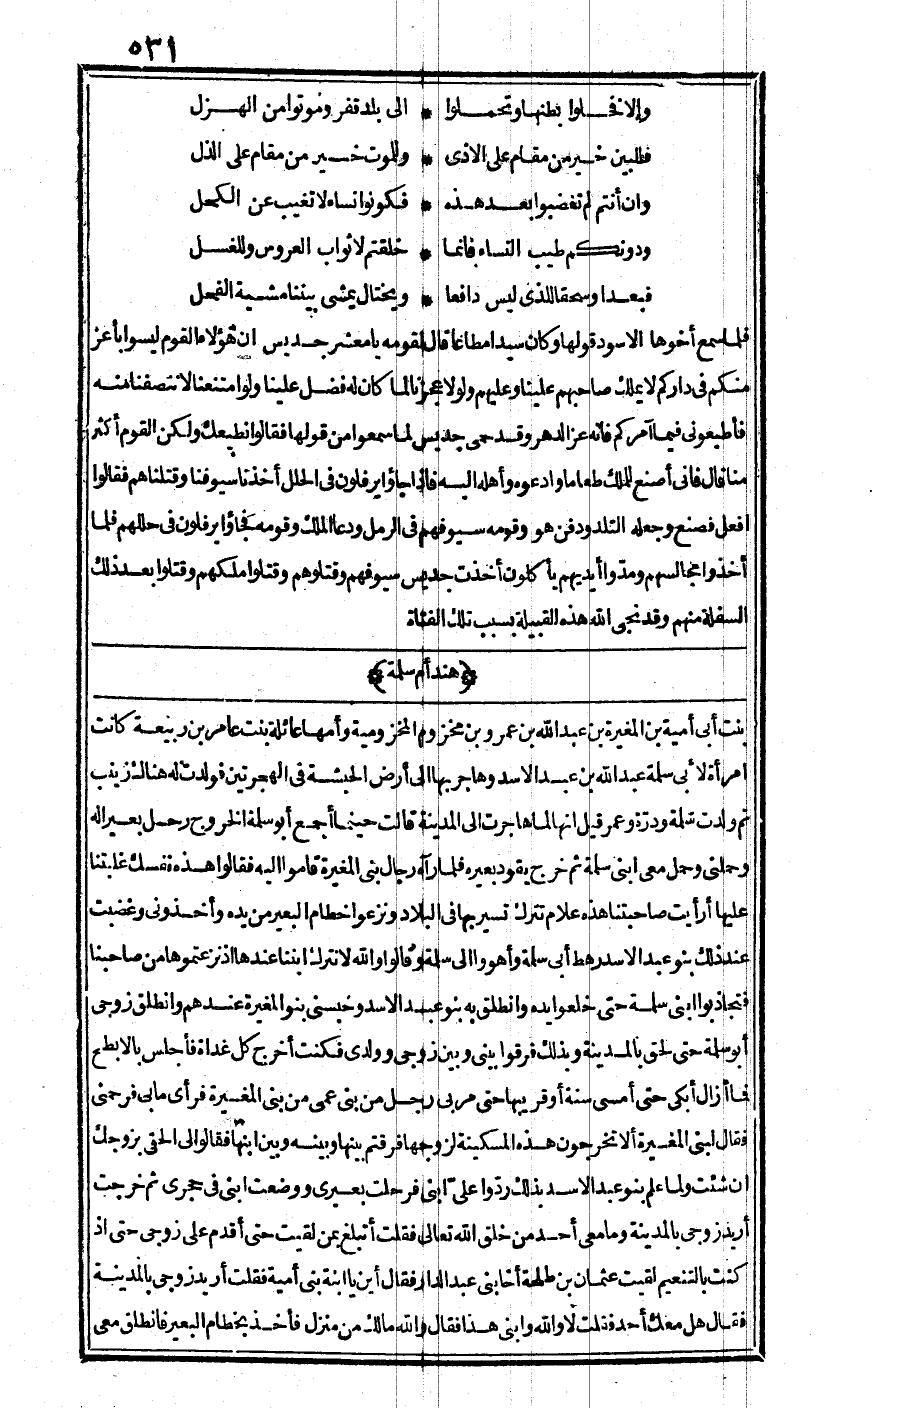 ٥٣١
وإلا فخلوا بطنها وتحملوا * الى بلد قفر وموتوا من الهزل
فللبين خير من مقام على الاذى * وللموت خير من مقام على الذل
وان أنتم لم تغضبوا بعد هذه * فكونوا نساء لا تغيب عن الكحل
ودونكم طيب النساء فانما * خلقتم لاثواب العروس وللغسل
فبعدا وسحقا للذى ليس دافعا * ويختال يمشى بيننا مشية الفحل
فلما سمع أخوها الاسود قولها وكان سيدا مطاعا قال لقومه يا معشر جديس ان هؤلاء القوم ليسوا بأعز
منكم فى داركم لا بملك صاحبهم علينا وعليهم ولولا عجزنا لما كان له فضل علينا ولو امتنعنا لانتصفنا منه
فأطيعونى فيما آمركم فانه عز الدهر وقد حمى جديس لما سمعوا من قولها فقالوا نطيعك ولكن القوم أكثر
منا قال فانى أصنع للملك طعاما وادعوه وأهله اليه فاذا جاؤا يرفلون فى الحلل أخذنا سيوفنا وقتلناهم فقالوا
افعل فصنع وجعله التلد ودفن هو وقومه سيوفهم فى الرمل ودعا الملك وقومه فجاؤا يرفلون فى حللهم فلما
أخذوا مجالسهم ومدوا أيديهم يأكلون أخذت جديس سيوفهم وقتلوهم وقتلوا ملكهم وقتلوا بعد ذلك
السفلة منهم وقد نجى الله هذه القبيلة بسبب تلك الفتاة
﴿هند أم سلمة﴾
بنت أبى أمية بن المغيرة بن عبد الله بن عمرو بن مخزوم المخزومية وأمها عاتكة بنت عامر بن ربيعة كانت
امرأة لابى سلمة عبد الله بن عبد الاسد وهاجر بها الى أرض الحبشة فى الهجرتين فولدت له هنالك زينب
ثم ولدت سلمة ودرة وعمر قيل انها لما هاجرت الى المدينة قالت حينما أجمع أبو سلمة الخروج رحل بعيرا له
وحملنى وحمل معى ابنى سلمة ثم خرج يقود بعيره فلما رآه رجال بنى المغيرة قاموا اليه فقالوا هذه نفسك غلبتنا
عليها أرأيت صاحبتنا هذه علام تترك تسير بها فى البلاد ونزعوا خطام البعير من يده وأخذونى وغضبت
عند ذلك بنو عبد الاسد رهط أبى سلمة وأهووا الى سلمة وقالوا والله لا نترك ابننا عندها اذ نزعتموها من صاحبنا
فتجاذبوا ابنى سلمة حتى خلعوا يده وانطلق به بنو عبد الاسد وحبسنى بنو المغيرة عندهم وانطلق زوجى
أبو سلمة حتى لحق بالمدينة وبذلك فرقوا بينى وبين زوجى وولدى فكنت أخرج كل غداة فأجلس بالابطح
فما أزال أبكى حتى أمسى سنة أو قريبها حتى مر بى رجل من بنى عمى من بنى المغيرة فرأى ما بى فرحمنى
فقال لبنى المغيرة ألا تخرجون هذه المسكينة لزوجها فرقتم بينها وبينه وبين ابنها فقالوا لى الحقى بزوجك
ان شئت ولما علم بنو عبد الاسد بذلك ردوا علىّ ابنى فرحلت بعيرى ووضعت ابنى فى حجرى ثم خرجت
أريد زوجى بالمدينة وما معى أحد من خلق الله تعالى فقلت أتبلغ بمن لقيت حتى أقدم على زوجى حتى اذ
كنت بالتنعيم لقيت عثمان بن طلحة أخا بنى عبد الدار فقال أين يا ابنة بنى أمية فقلت أريد زوجى بالمدينة
فقال هل معك أحد فقلت لا والله وابنى هذا فقال والله مالك من منزل فأخذ بخطام البعير فانطلق معى